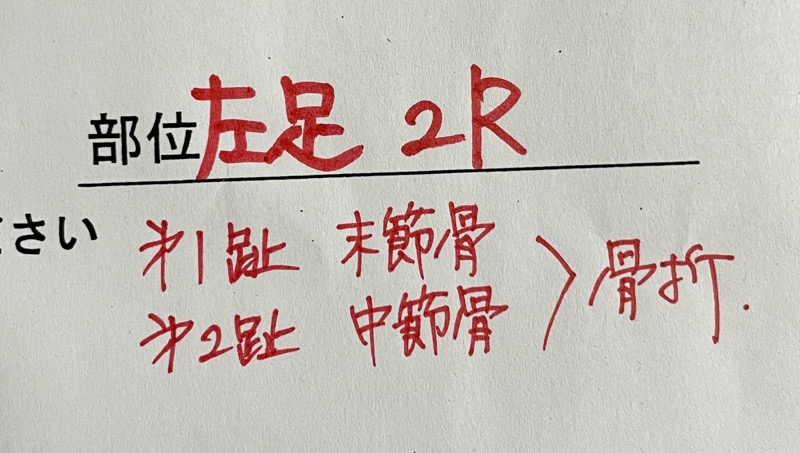 部位 左足 2R
ださい
第1趾 末節骨
第2趾 中節骨 > 骨折.